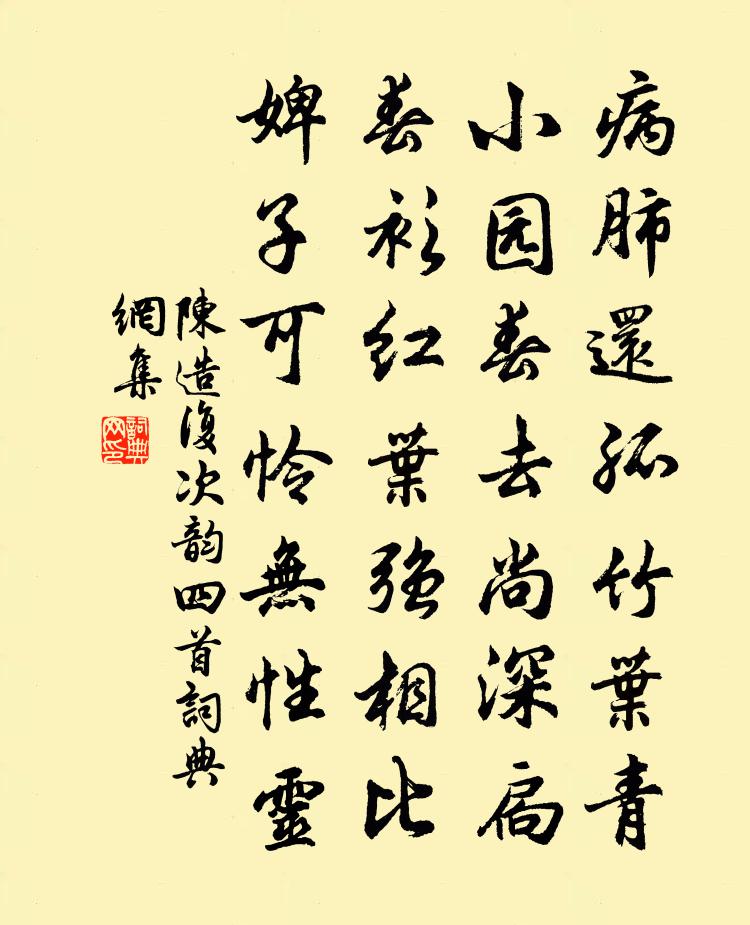 病肺還孤竹葉青
小园春去尚深扃
春衫红葉强相比
婢子可怜無性靈
陳造復次韵四首詞典
網集
詞典
网印